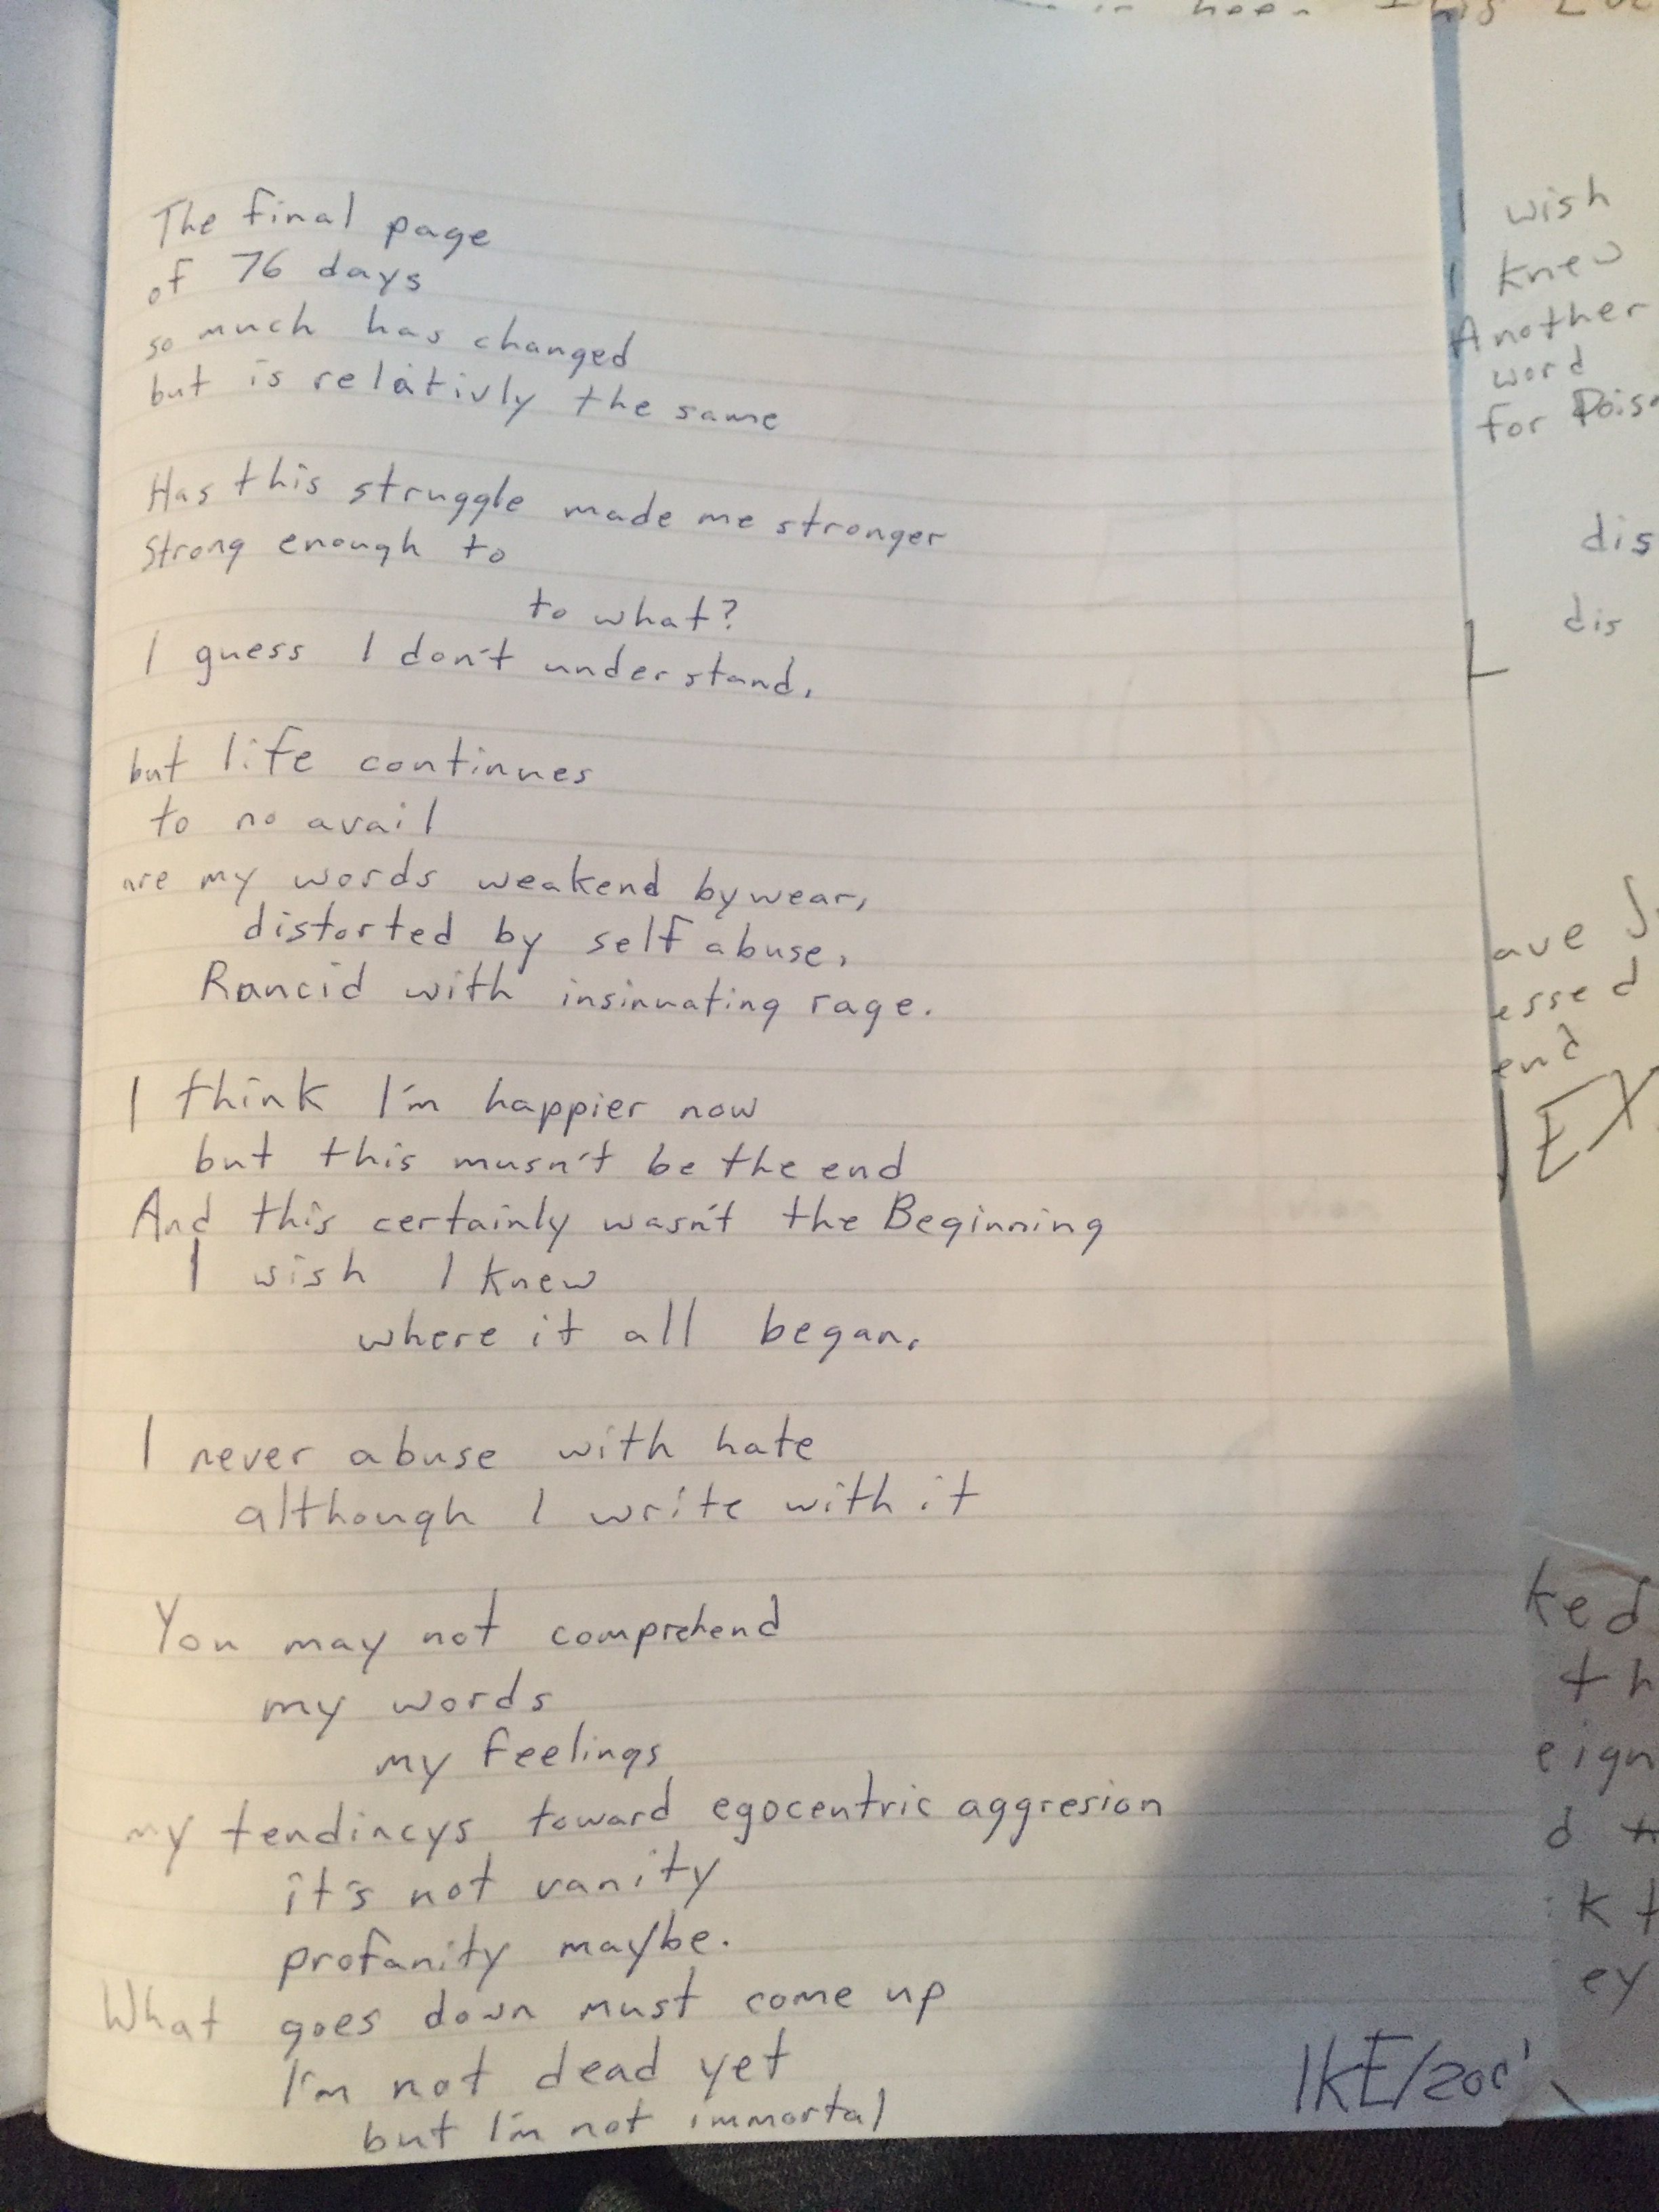 The final page
of 76 days
so much has changed
but is relativly the same
Has this struggle made me stronger
strong enough to
to what?
I guess I don't understand.
but life continues
to no avail
are my words weakend by wear,
distorted by self abuse,
Rancid with insinuating rage.
I think I'm happier now
but this musn't be the end
And this certainly wasn't the Beginning
I wish I knew
where it all began.
I never abuse with hate
although I write with it
You may not comprehend
my words
my feelings
my tendincys toward egocentric aggresion
it's not vanity
profanity maybe.
What goes down must come up
I'm not dead yet
but I'm not immortal
IKE/200
I wish
I knew
Another
word
for Pois
dis
dis
ave
essed
end
EX
ked
th
eign
d
ik t
ey